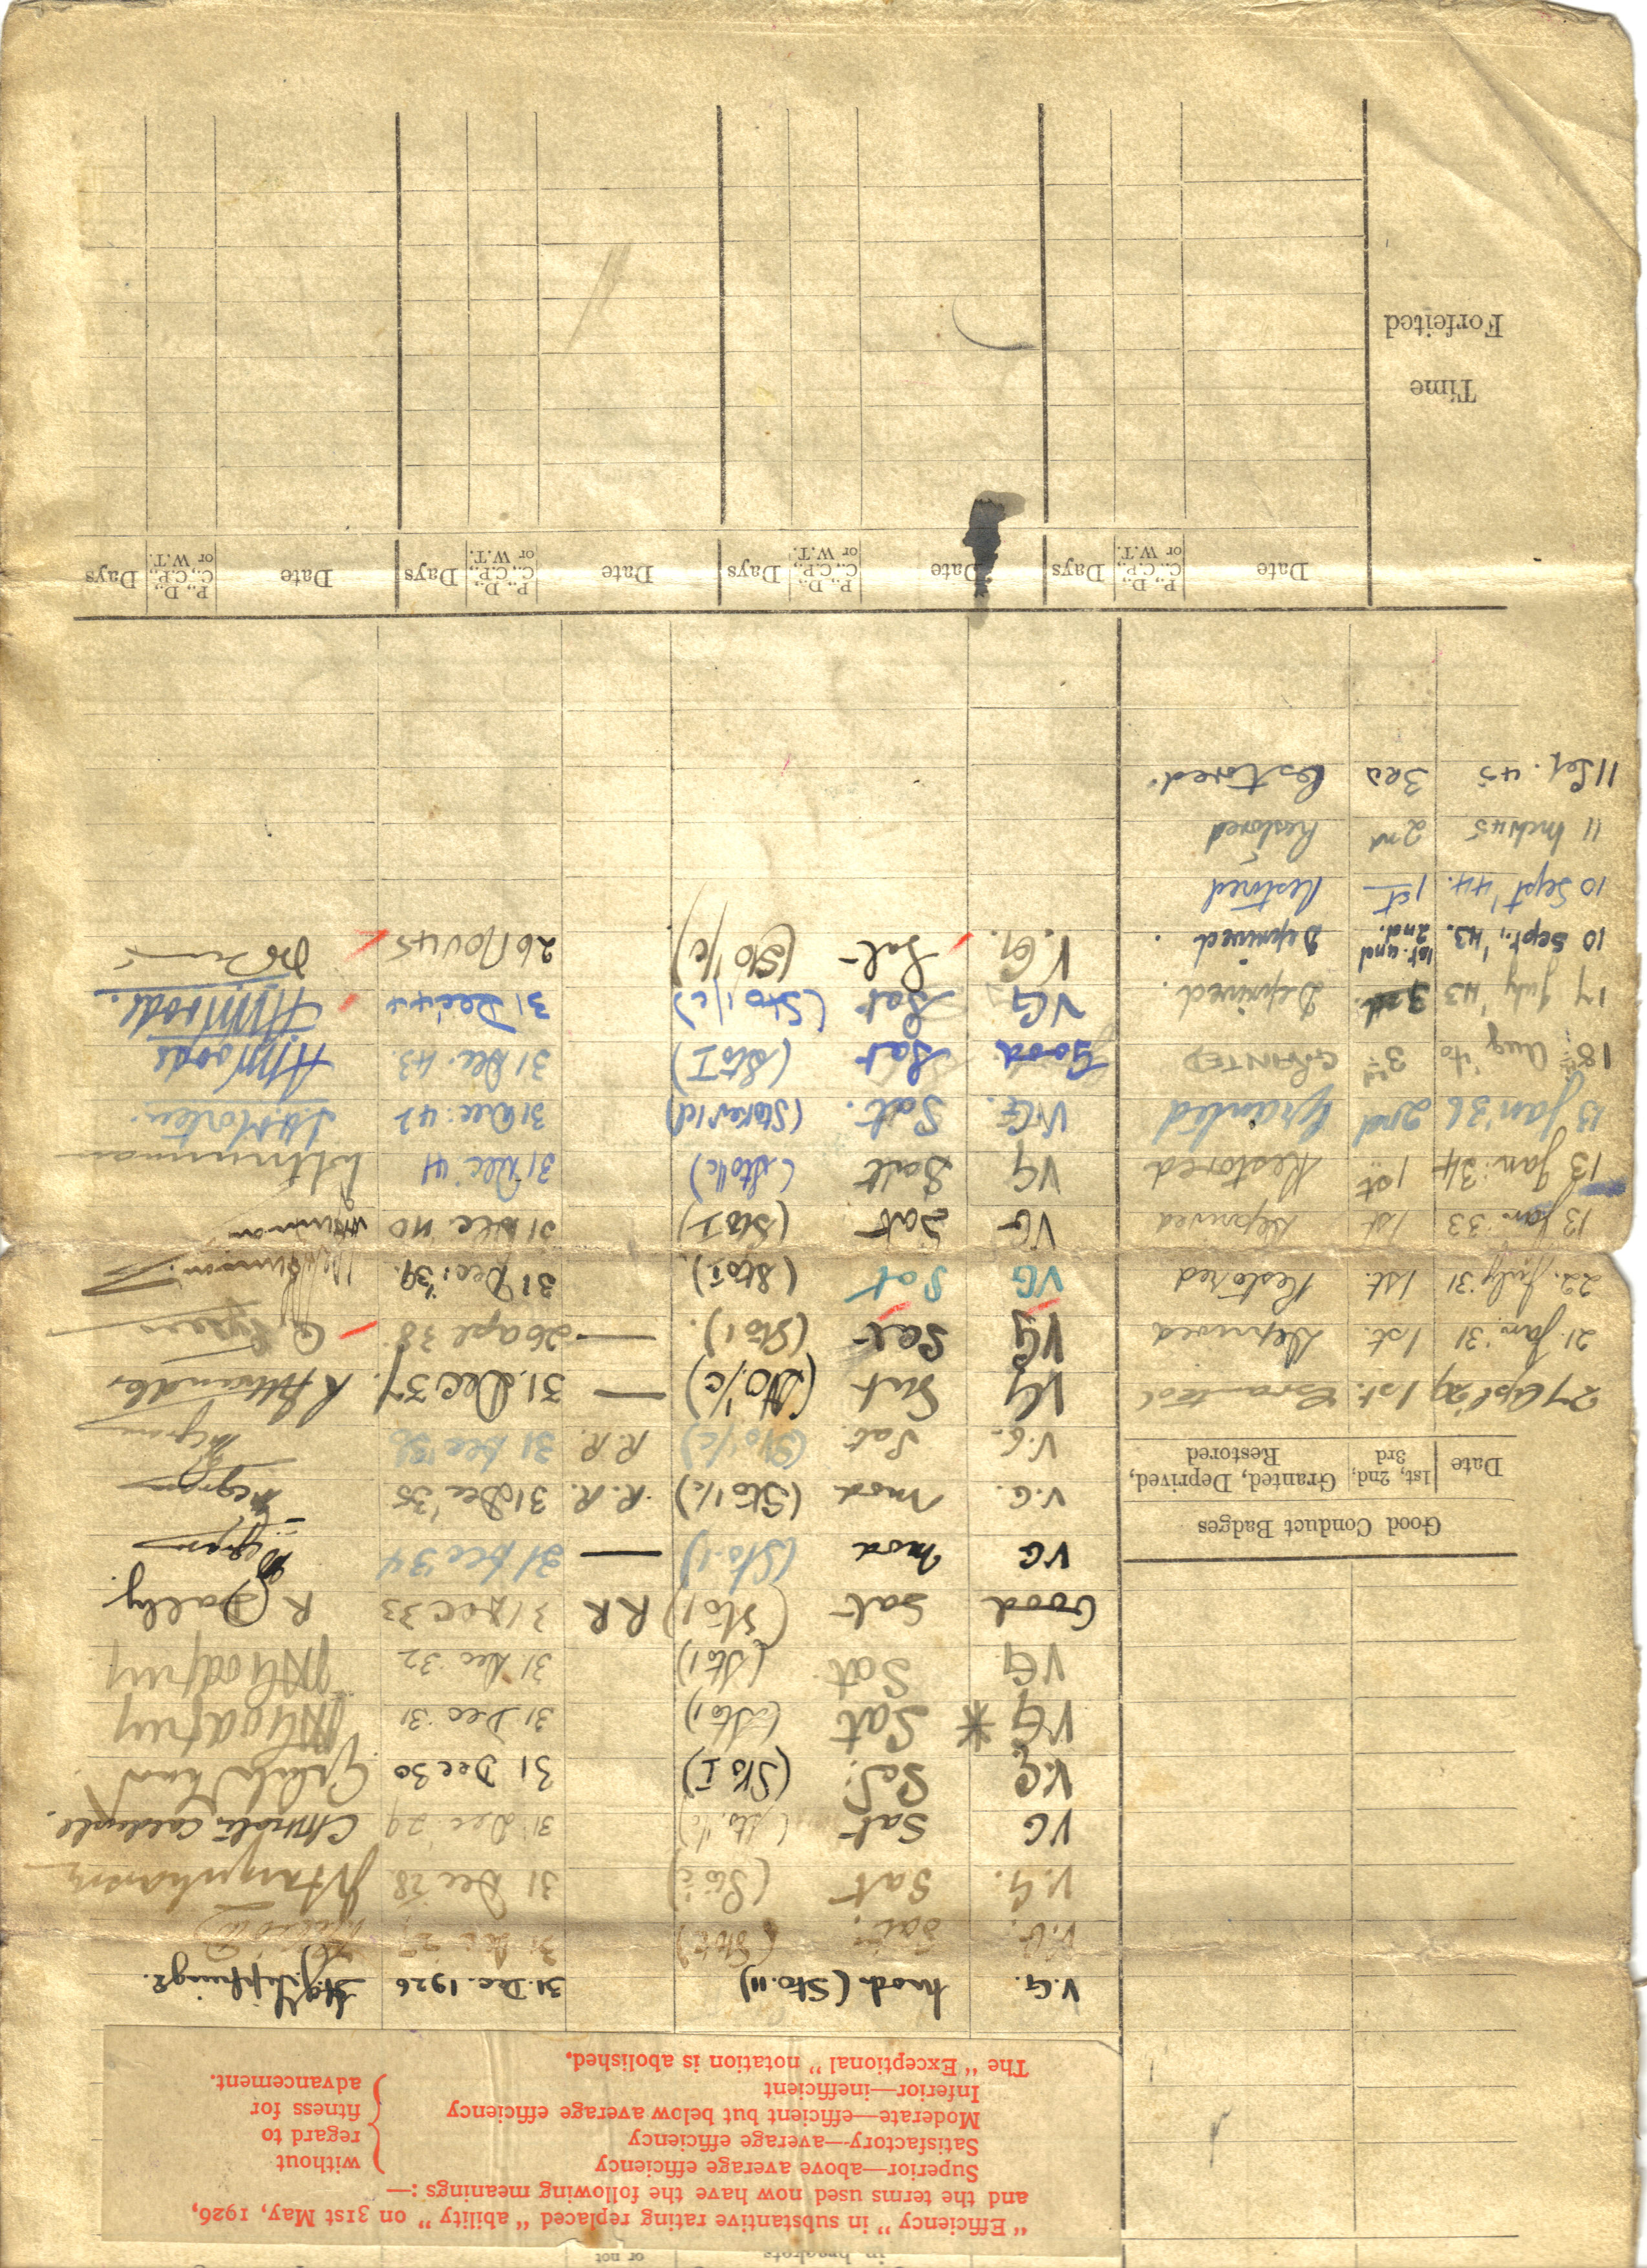 in brackets or not
"Efficiency" in substantive rating replaced "ability" on 31st May, 1926,
and the terms used now have the following meanings :—
Superior—above average efficiency
Satisfactory—average efficiency
Moderate—efficient but below average efficiency
Inferior—inefficient
without
regard to
fitness for
advancement.
The "Exceptional" notation is abolished.
V.G. Mod. (Sto. II) 31. Dec. 1926
V.G. Sat. 31 Dec 27
V.G. Sat 31 Dec 28
VG Sat 31 Dec 29
V.G. Sat. (Sto I) 31 Dec 30
VG * Sat (Sto 1) 31. Dec 31
VG Sat (Sto 1) 31. Dec 32
Good Sat (Sto 1) RR 31 Dec 33 R Dalby.
VG Mod (Sto. 1) — 31 Dec 34
V.G. Mod (Sto 1/c) R.R. 31 Dec '35
V.G. Sat (Sto 1/c) R.R. 31 Dec 36
VG Sat (Sto 1/c) — 31. Dec 37
VG Sat (Sto 1). — 26 Apl 38
VG Sat (Sto I). 31 Dec '39.
VG Sat (Sto I) 31 Dec '40
VG Sat (Sto 1/c) 31 Dec '41
V.G. Sat. (Stoker 1cl) 31 Dec. 42
Good Sat (Sto I) 31 Dec. 43
VG Sat (Sto 1/c) 31 Dec 44
V.G. Sat (Sto 1/c) 26 Nov 45
Good Conduct Badges
Date 1st, 2nd, 3rd Granted, Deprived, Restored
27 Apl 29 1st. Granted
21. Jan. '31 1st. Deprived
22. July '31 1st. Restored
13 Jan. 33 1st Deprived
13 Jan. 34 1st Restored
13 Jan '36 2nd Granted
18th Aug '40 3rd GRANTED
17 July '43 3rd. Deprived.
10 Sept., '43. 1st. and 2nd. Deprived.
10 Sept '44. 1st Restored
11 Mch 45 2nd Restored
11 Sep. 45 3rd Restored.
Date P., D., C., C.P., or W.T. Days Date P., D., C., C.P., or W.T. Days Date P., D., C., C.P., or W.T. Days Date P., D., C., C.P., or W.T. Days
Time
Forfeited